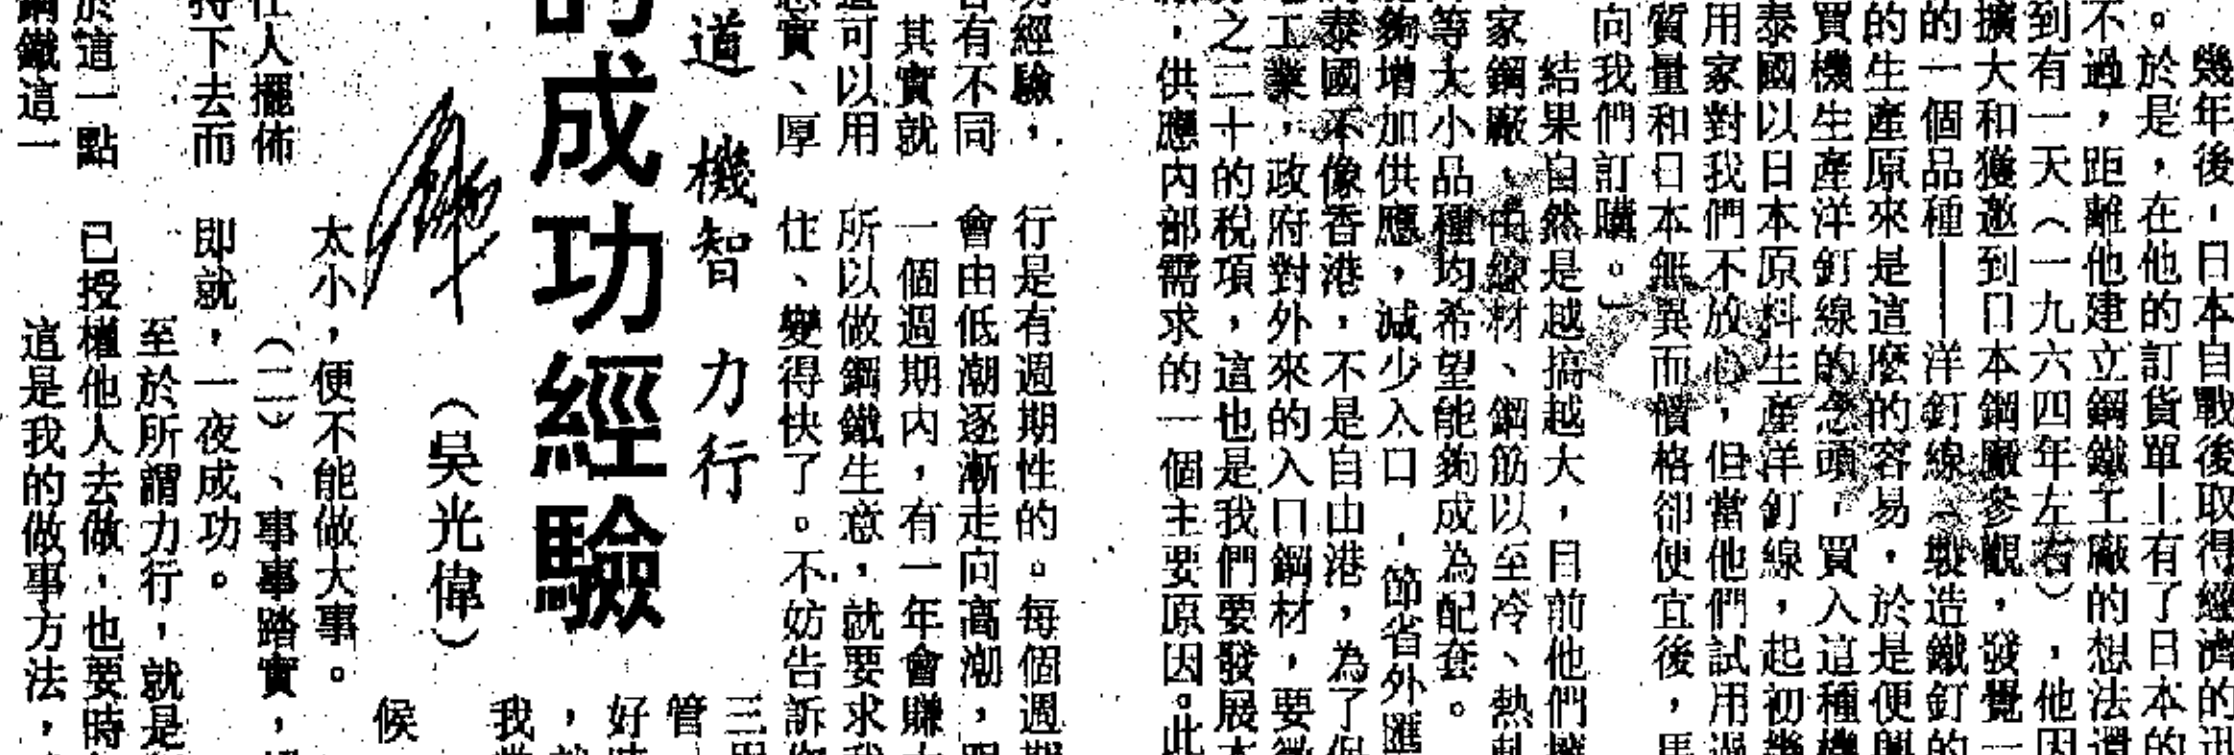 幾年後，日本自戰後取得經濟的
。於是，在他的訂貨單上有了日本的
不過，距離他建立鋼鐵工廠的想法還
到有一天（一九六四年左右），他因
擴大和獲邀到日本鋼廠參觀，發覺一
的一個品種——洋釘線——製造鐵釘的
的生產原來是這麼的容易，於是便興
買機生產洋釘線的念頭，買入這種機
泰國以日本原料生產洋釘線，起初幾
用家對我們不放心，但當他們試用過
質量和日本無異而價格卻便宜後，馬
向我們訂購。」
結果自然是越搞越大，目前他們擁
家鋼廠，由線材、鋼筋以至冷、熱軋
等大小品種均希望能夠成為配套。
夠增加供應，減少入口，節省外匯
泰國不像香港，不是自由港，為了保
工業，政府對外來的入口鋼材，要徵
之二十的稅項，這也是我們要發展本
，供應內部需求的一個主要原因。此
經驗，
有不同
其實就
可以用
實、厚
行是有週期性的。每個週期
會由低潮逐漸走向高潮，
一個週期內，有一年會賺
所以做鋼鐵生意，就要求我
住、變得快了。不妨告訴
道 機智 力行
的成功經驗
（吳光偉）
三
管
好
，
我
候
人擺佈
持下去而
於這一點
鋼鐵這一
太小，便不能做大事。
（二）、事事踏實，
即就，一夜成功。
至於所謂力行，就是
已授權他人去做，也要時
這是我的做事方法，